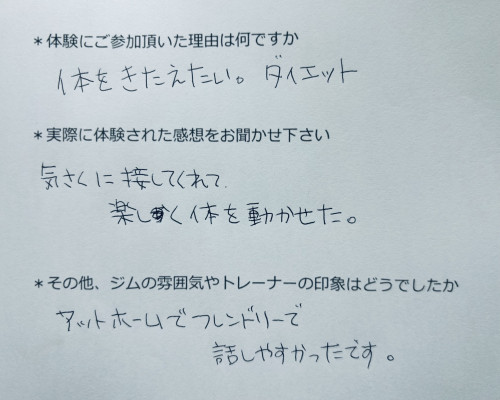 ＊体験にご参加頂いた理由は何ですか
体をきたえたい。ダイエット
＊実際に体験された感想をお聞かせ下さい
気さくに接してくれて、
楽しく体を動かせた。
＊その他、ジムの雰囲気やトレーナーの印象はどうでしたか
アットホームでフレンドリーで
話しやすかったです。